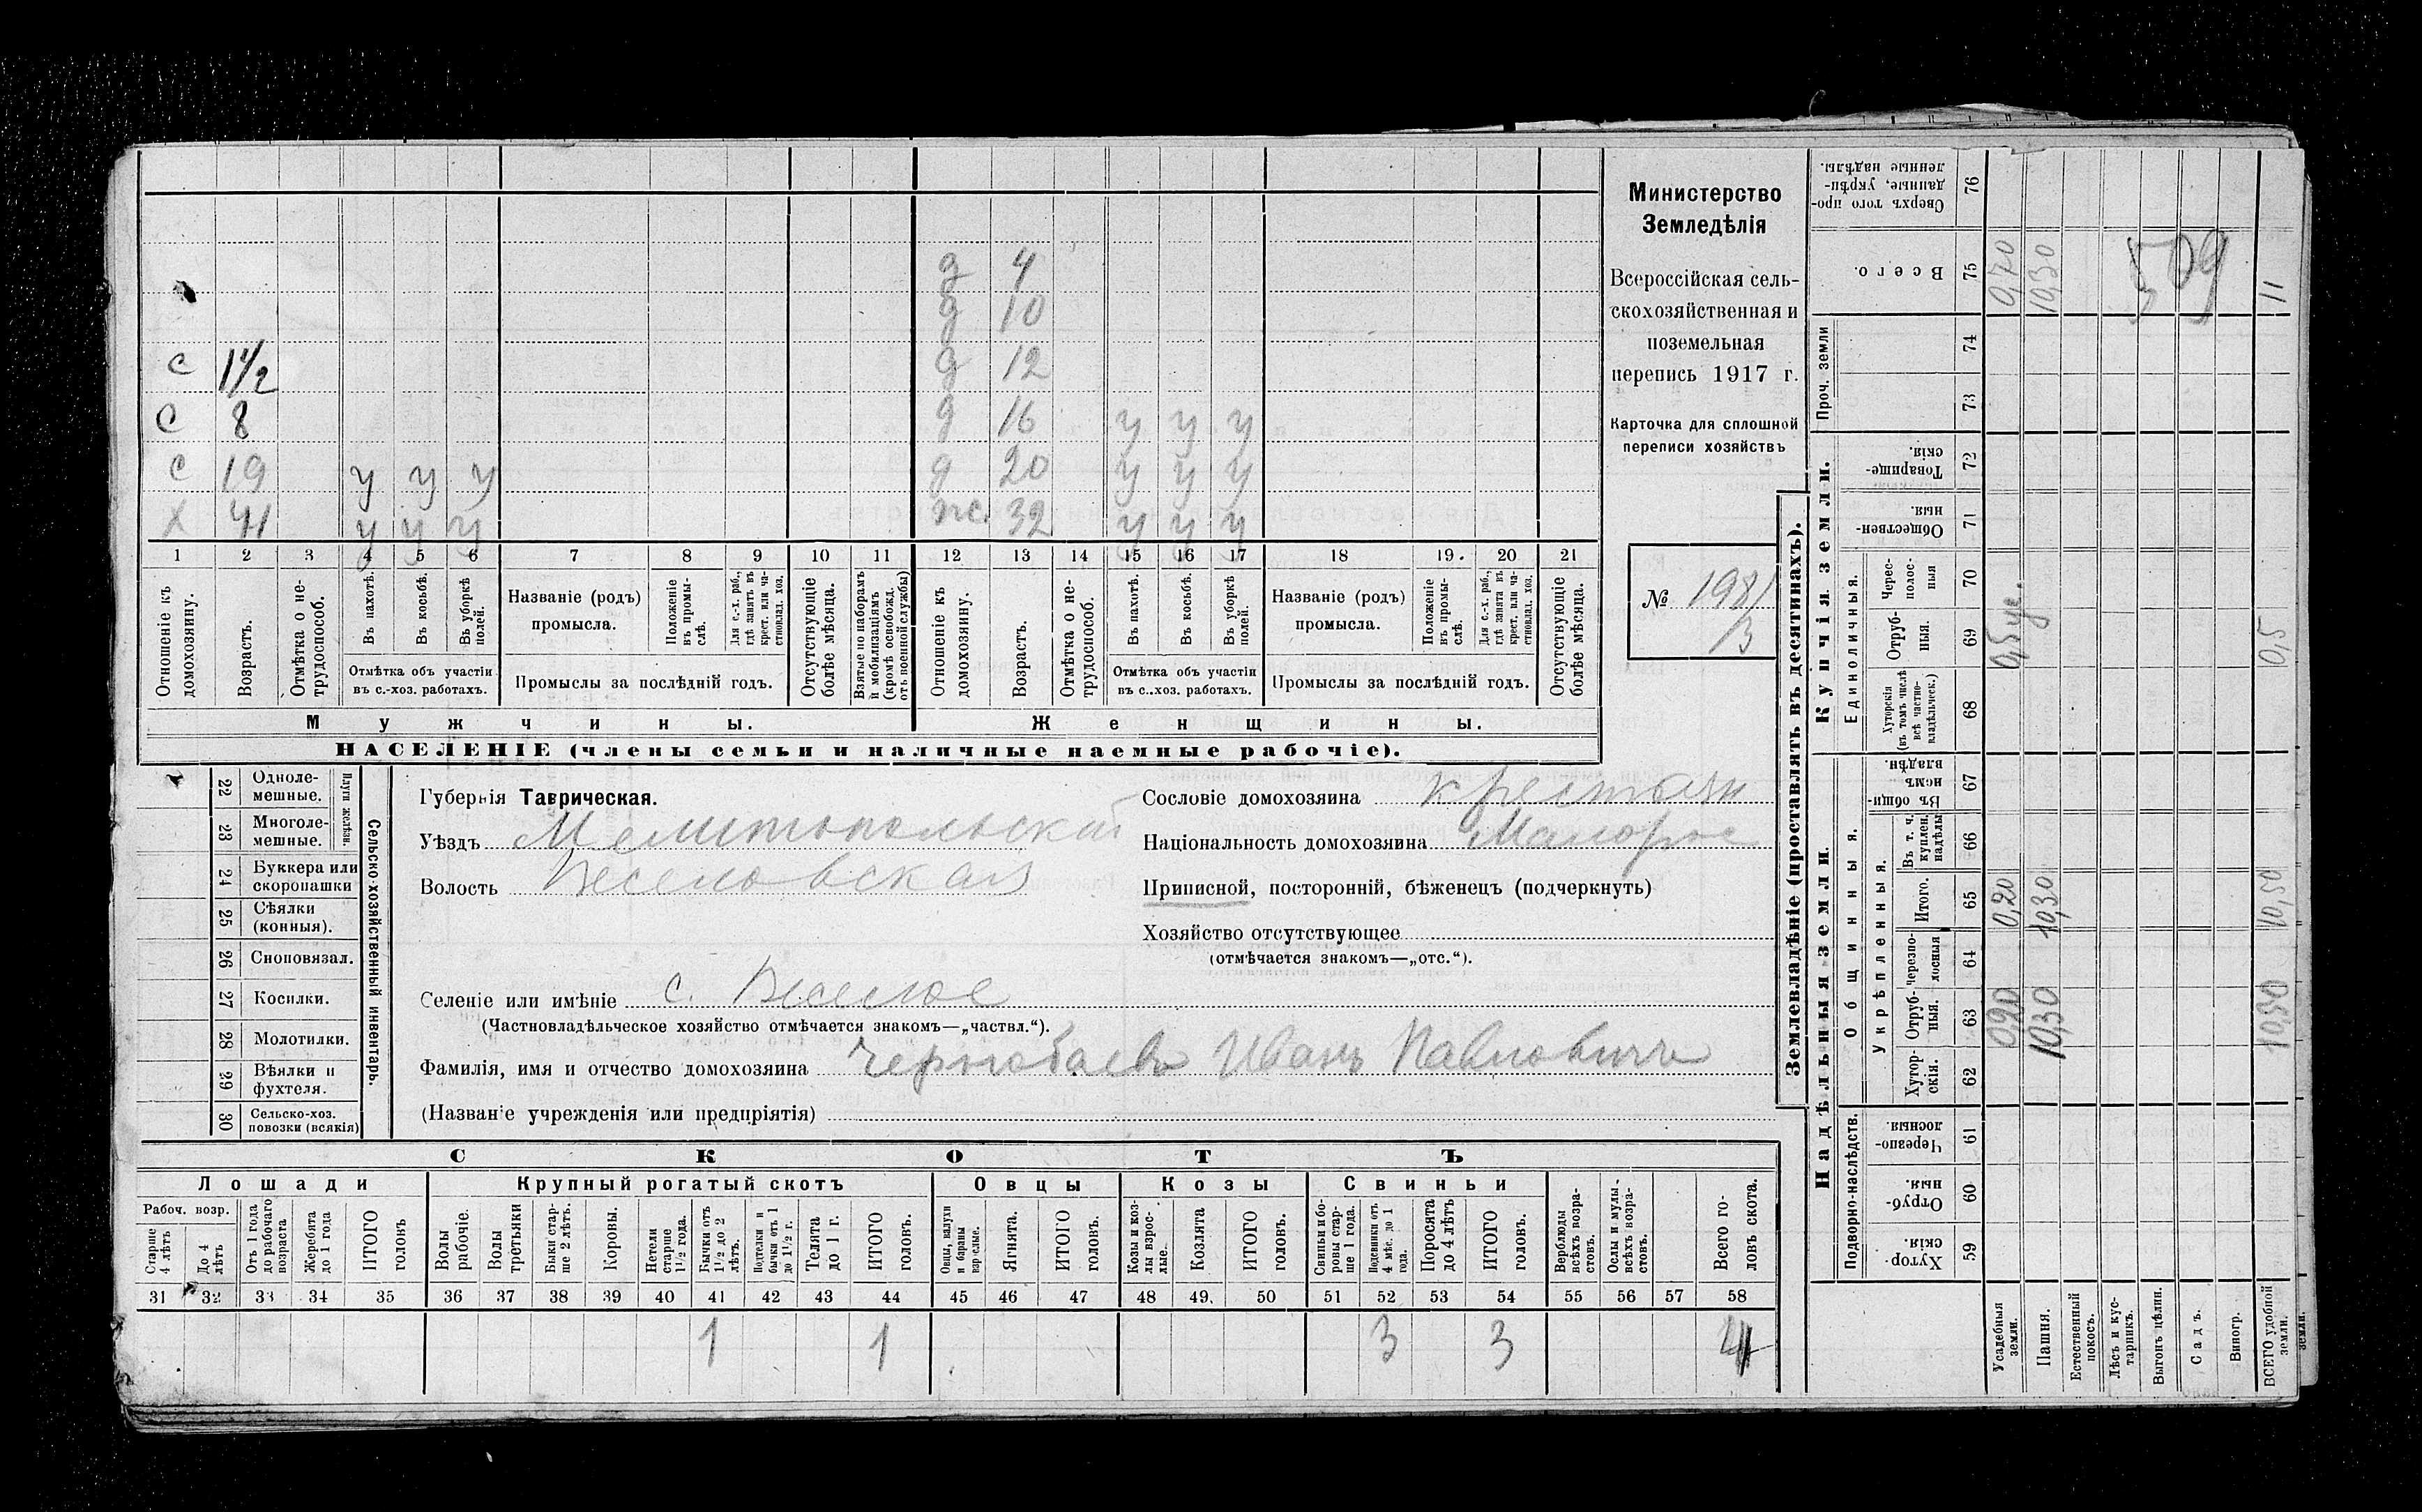 Министерство
Земледѣлія
Всероссійская сель-
скохозяйственная и
поземельная
перепись 1917 г.
Карточка для сплошной
переписи хозяйствъ
№ 198/
/3
д 4
д 10
с 1 1/2 д 12
с 8 д 16 у у у
с 19 у у у д 20 у у у
х 41 у у у ж. 32 у у у
1 2 3 4 5 6 7 8 9 10 11 12 13 14 15 16 17 18 19. 20 21
Отношеніе къ домохозяину.
Возрастъ.
Отмѣтка о не-трудоспособ.
Въ пахотѣ.
Въ косьбѣ.
Въ уборкѣ полей.
Отмѣтка объ участіи
въ с.-хоз. работахъ.
Названіе (родъ)
промысла.
Положеніе въ промы-слѣ.
Для с.-х. раб., гдѣ занятъ въ крест. или ча-стновлад. хоз.
Промыслы за послѣдній годъ.
Отсутствующіе болѣе мѣсяца.
Взятые по наборамъ и мобилизаціямъ (кромѣ освобожд. отъ военной службы)
Отношеніе къ домохозяину.
Возрастъ.
Отмѣтка о не-трудоспособ.
Въ пахотѣ.
Въ косьбѣ.
Въ уборкѣ полей.
Отмѣтка объ участіи
въ с.-хоз. работахъ.
Названіе (родъ)
промысла.
Положеніе въ промы-слѣ.
Для с.-х. раб., гдѣ занята въ крест. или ча-стновлад. хоз.
Промыслы за послѣдній годъ.
Отсутствующіе болѣе мѣсяца.
Мужчины.
Женщины.
НАСЕЛЕНІЕ (члены семьи и наличные наемные рабочіе).
Сельско-хозяйственный инвентарь.
Плуги желѣзн.
22 Одноле-мешные.
23 Многоле-мешные.
24 Буккера или скоропашки
25 Сѣялки (конныя).
26 Сноповязал.
27 Косилки.
28 Молотилки.
29 Вѣялки и фухтеля.
30 Сельско-хоз. повозки (всякія)
Губернія Таврическая.
Уѣздъ Мелитопольский
Волость Веселовская
Сословіе домохозяина крестьян
Національность домохозяина Малорос
Приписной, посторонній, бѣженецъ (подчеркнуть)
Хозяйство отсутствующее
(отмѣчается знакомъ—„отс.“).
Селеніе или имѣніе с. Веселое
(Частновладѣльческое хозяйство отмѣчается знакомъ—„частвл.“).
Фамилія, имя и отчество домохозяина Чернобаевъ Иванъ Павловичъ
(Названіе учрежденія или предпріятія)
СКОТЪ
Лошади
Крупный рогатый скотъ
Овцы
Козы
Свиньи
Рабоч. возр.
Старше 4 лѣтъ
До 4 лѣтъ
Отъ 1 года до рабочаго возраста
Жеребята до 1 года
ИТОГО головъ
Волы рабочіе.
Волы третьяки
Быки стар-ше 2 лѣтъ.
Коровы.
Нетели старше 1 1/2 года.
Бычки отъ 1 1/2 до 2 лѣтъ.
Подтелки и бычки отъ 1 до 1 1/2 г.
Телята до 1 г.
ИТОГО головъ.
Овцы, валухи и бараны взрослые.
Ягнята.
ИТОГО головъ.
Козы и коз-лы взрос-лые.
Козлята
ИТОГО головъ.
Свиньи и бо-ровы стар-ше 1 года.
Подсвинки отъ 4 мѣс. до 1 года.
Поросята до 4 лѣтъ
ИТОГО головъ.
Верблюды всѣхъ возра-стовъ.
Ослы и мулы всѣхъ возра-стовъ.
Всего го-ловъ скота.
31 32 33 34 35 36 37 38 39 40 41 42 43 44 45 46 47 48 49. 50 51 52 53 54 55 56 57 58
1 1 3 3 4
Землевладѣніе (проставлять въ десятинахъ).
Надѣльныя земли.
Купчія земли.
Проч. земли
Подворно-наслѣдств.
Общинныя.
Укрѣпленныя.
Единоличныя.
Хутор-скія. 59
Отруб-ныя. 60
Черезпо-лосныя. 61
Хутор-скія. 62
Отруб-ныя. 63
черезпо-лосныя 64
Итого. 65
Въ т. ч. куплен. надѣлы 66
Въ общи-нномъ владѣн. 67
Хуторскія (въ томъ числѣ всѣ частно-владѣльческ.) 68
Отруб-ныя. 69
Черес-полос-ныя 70
Обществен-ныя. 71
Товарище-скія. 72
73
74
Всего. 75
Сверхъ того про-данные, укрѣп-ленные надѣлы. 76
Усадебныя земли. 0,20 0,20 0,5 ус. 0,70
Пашня. 10,30 10,30 10,30
Естественный покосъ.
Лѣсъ и кус-тарникъ.
Выгонъ цѣлин.
Садъ.
Виногр.
ВСЕГО удобной земли. 10,50 10,50 0,5 11
509